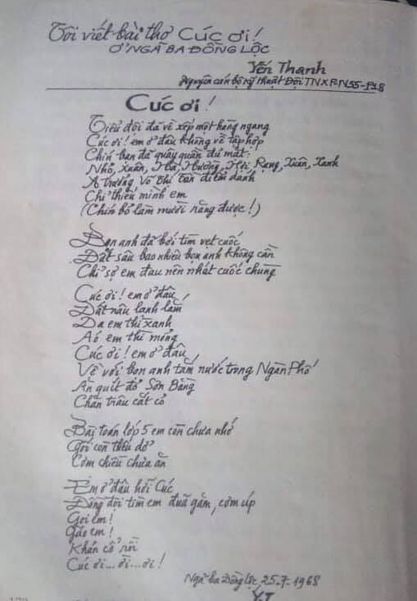 Tôi viết bài thơ Cúc ơi!
Ở NGÃ BA ĐỒNG LỘC
Yến Thanh
Nguyên cán bộ kỹ thuật Đội TNXP N55-P18
Cúc ơi!
Tiểu đội đã về xếp một hàng ngang
Cúc ơi! em ở đâu không về tập hợp
Chín bạn đã quây quần đủ mặt:
Nhỏ, Xuân, Hà, Hường, Hợi, Rạng, Xuân, Xanh
A trưởng Võ Thị Tần điểm danh
Chỉ thiếu mình em
(Chín bỏ làm mười răng được!)
Bọn anh đã bới tìm vẹt cuốc
Đất sâu bao nhiêu bọn anh không cần
Chỉ sợ em đau nên nhát cuốc chùng
Cúc ơi! em ở đâu
Đất nâu lạnh lắm
Da em thì xanh
Áo em thì mỏng
Cúc ơi! em ở đâu
Về với bọn anh tắm nước trong Ngàn Phố
Ăn quít đỏ Sơn Bằng
Chăn trâu cắt cỏ
Bài toán lớp 5 em còn chưa nhớ
Gối còn thêu dở
Cơm chiều chưa ăn
Em ở đâu hỡi Cúc
Đồng đội tìm em đũa găm, cơm úp
Gọi em!
Gào em!
Khản cổ rồi
Cúc ơi...ơi...ơi!
Ngã ba Đồng Lộc 25.7.1968
Y.T